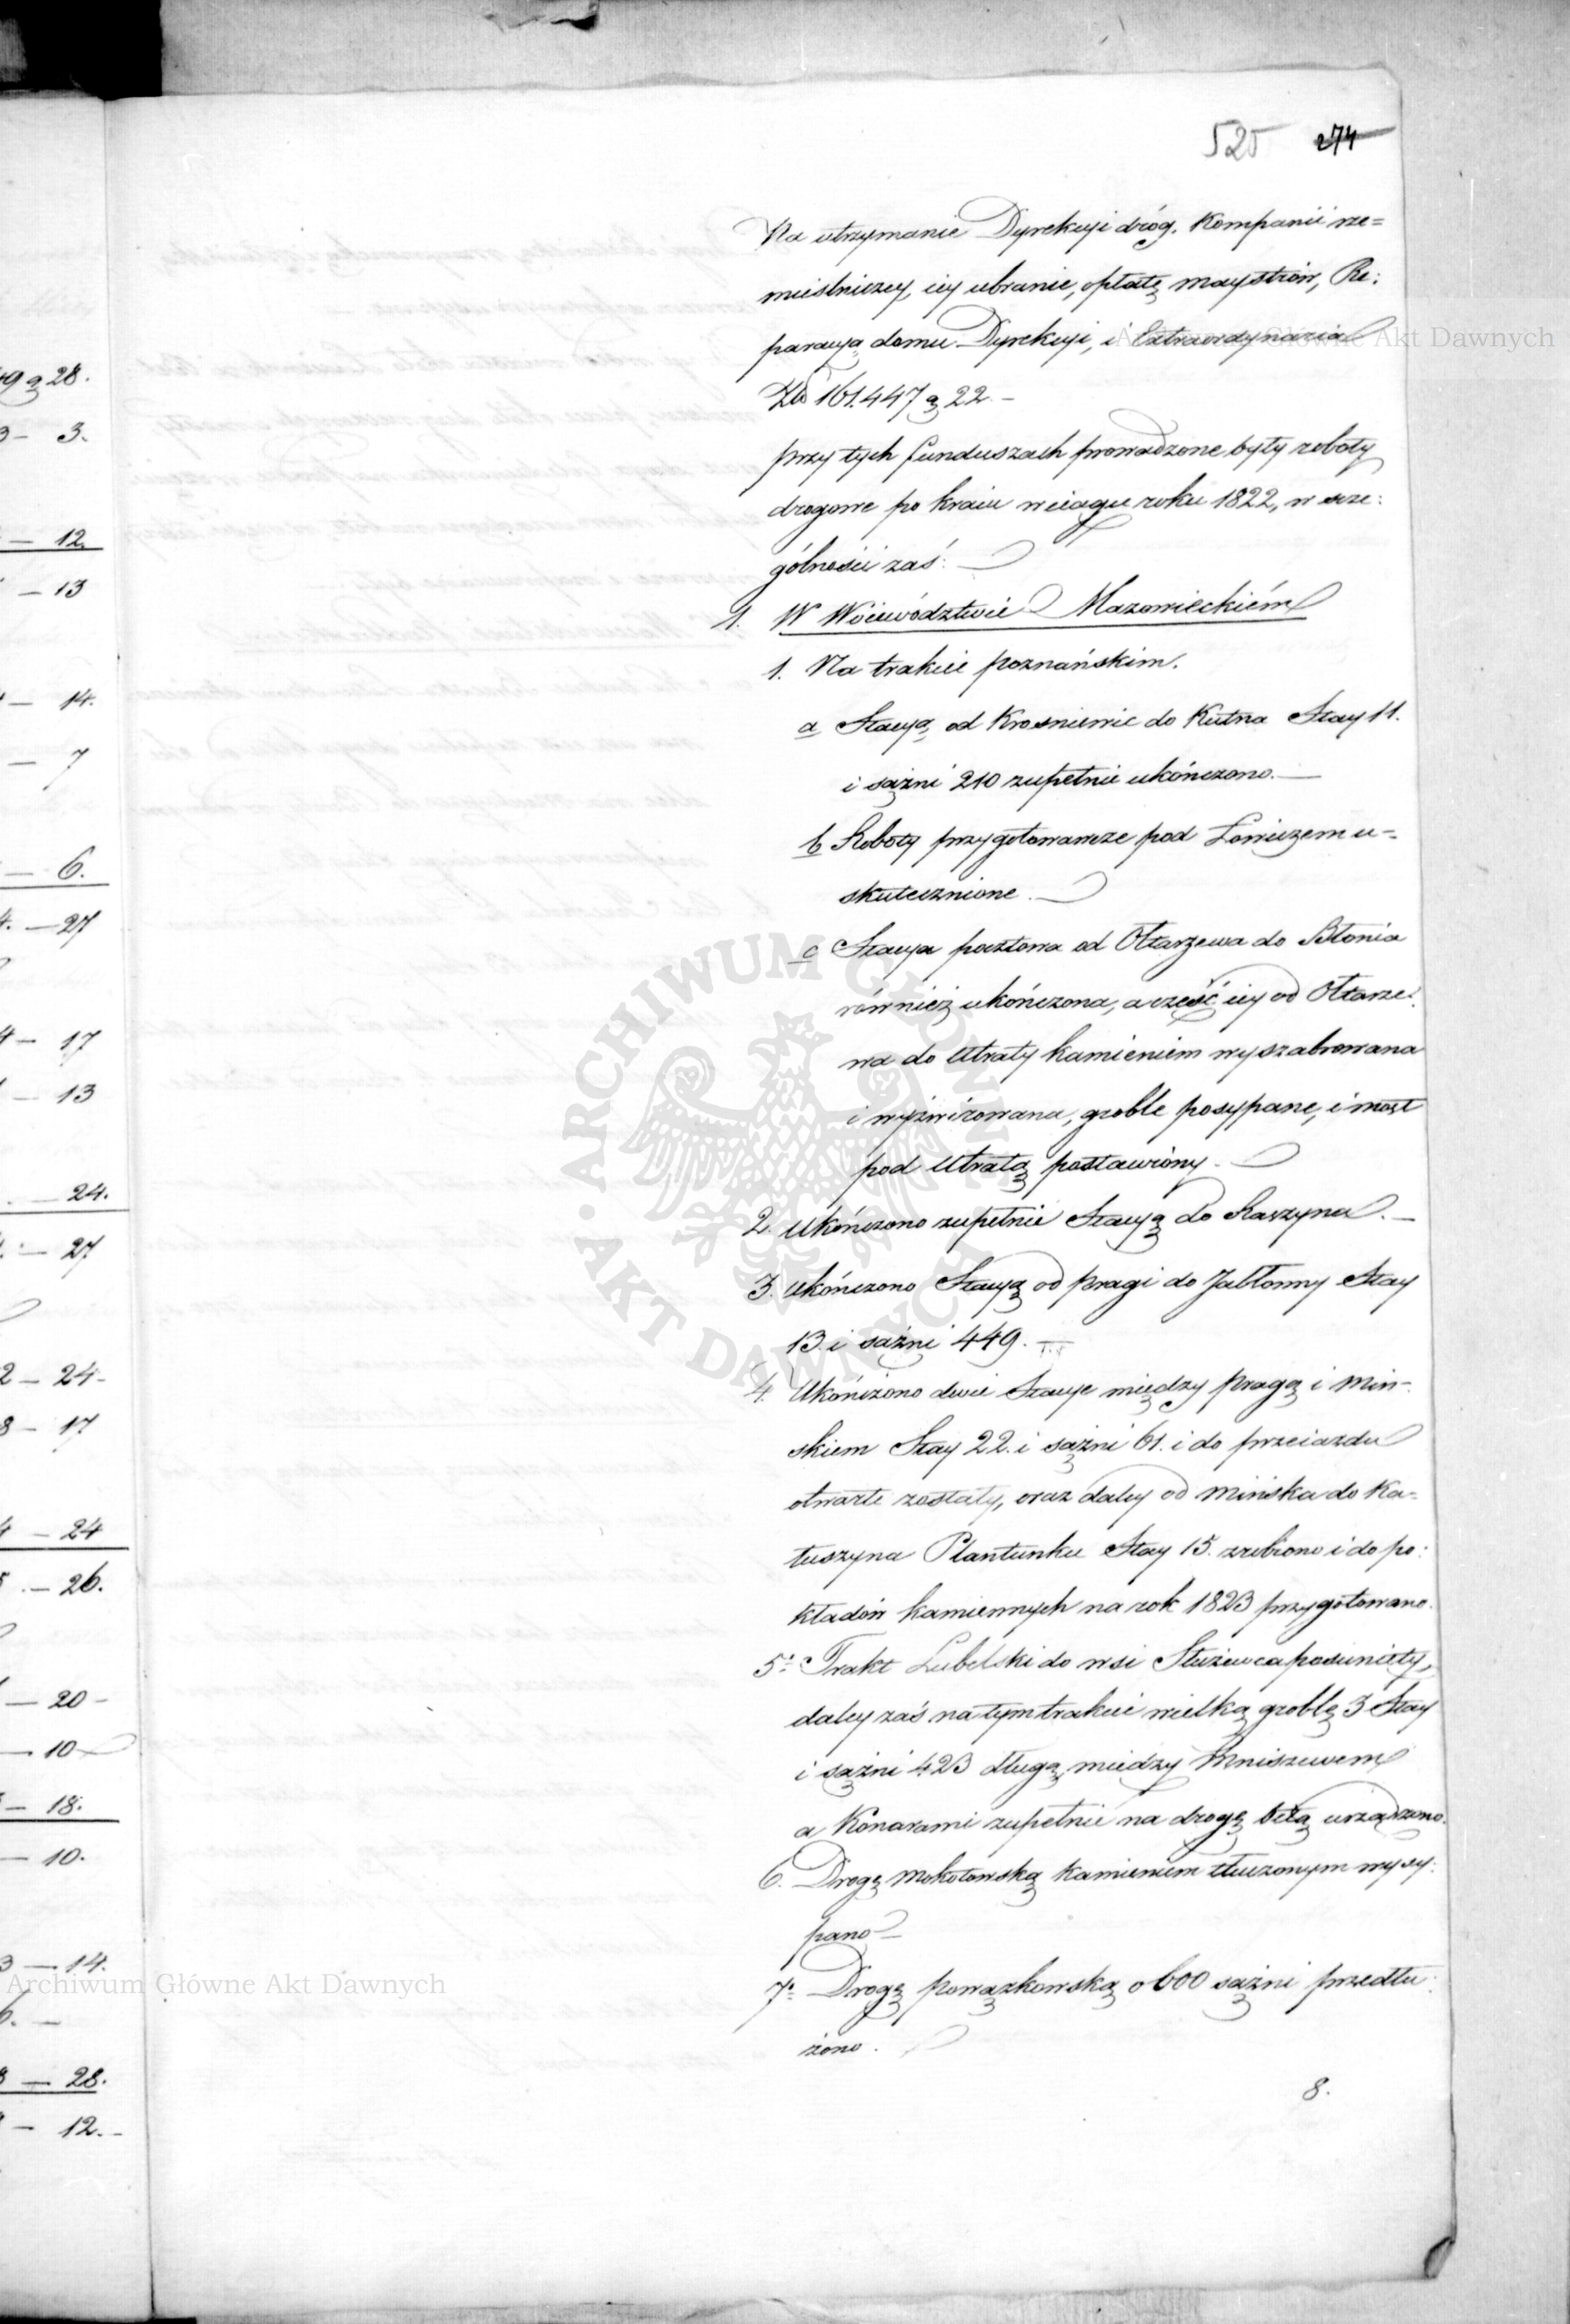 525 274
Na utrzymanie Dyrekcyi dróg, Kompanii rze=
mieślniczey, iey ubranie, opłatę maystrów, Re:
paracyą domu Dyrekcyi, i Extraordynaria
Złp 161.447 g 22. –
przy tych funduszach prowadzone były roboty
drogowe po kraiu w ciągu roku 1822, w szcze:
gólności zaś:
1. W Woiewództwie Mazowieckiém
1. Na trakcie poznańskim.
a Stacyą od Krosniewic do Kutna Stay 11.
i sążni 210 zupełnie ukończono. —
b Roboty przygotowawcze pod Łowiczem u-
skutecznione. —
c Stacya pocztowa od Ołtarzewa do Błonia
również ukończona, a część iey od Ołtarze:
wa do Utraty kamieniem wyszabrowana
i wyżwirowana, groble posypane, i most
pod Utratą postawiony. —
2. Ukończono zupełnie Stacyą do Raszyna. —
3. Ukończono Stacyą od Pragi do Jabłonny Stay
13. i sążni 449. —
4. Ukończono dwie Stacye między Pragą i Miń-
skiem Stay 22. i sążni 61. i do przeiazdu
otwarte zostały, oraz daley od Mińska do Ka-
łuszyna Plantunku Stay 15. zrobiono i do po:
kładów kamiennych na rok 1823 przygotowano.
5. Trakt Lubelski do wsi Służewca posunięty,
daley zaś na tym trakcie wielką groblę 3 Stay
i sążni 423 długą, miedzy Mniszewem
a Konarami zupełnie na drogę bitą urządzono.
6. Drogę Mokotowską kamieniem tłuczonym wysy:
pano —
7. Drogę powązkowską o 600 sążni przedłu:
żono.
8.
49 g 28.
3 – 3.
– 12.
– 13
– 14.
– 7
– 6.
4. – 27
4 – 17
– 13
– 24.
– 27
2 – 24-
8 – 17
4 – 24
5 – 26.
– 20 –
– 10
– 18.
– 10.
3 – 14.
6. –
8 – 28.
– 12. -
Archiwum Główne Akt Dawnych
Archiwum Główne Akt Dawnych
ARCHIWUM GŁÓWNE AKT DAWNYCH